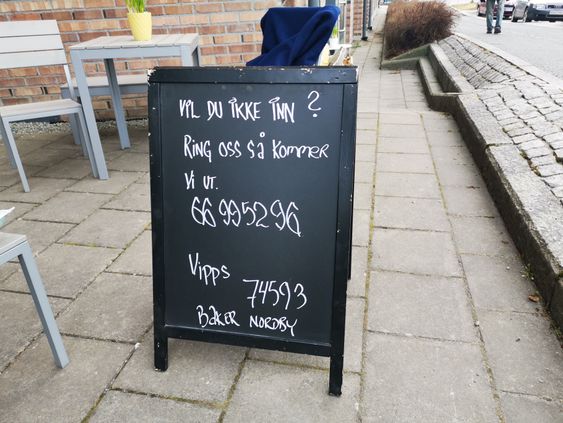 VIL DU IKKE INN ?
RING OSS SÅ KOMMER
VI UT.
66995296
Vipps
74593
BAKER NORDBY